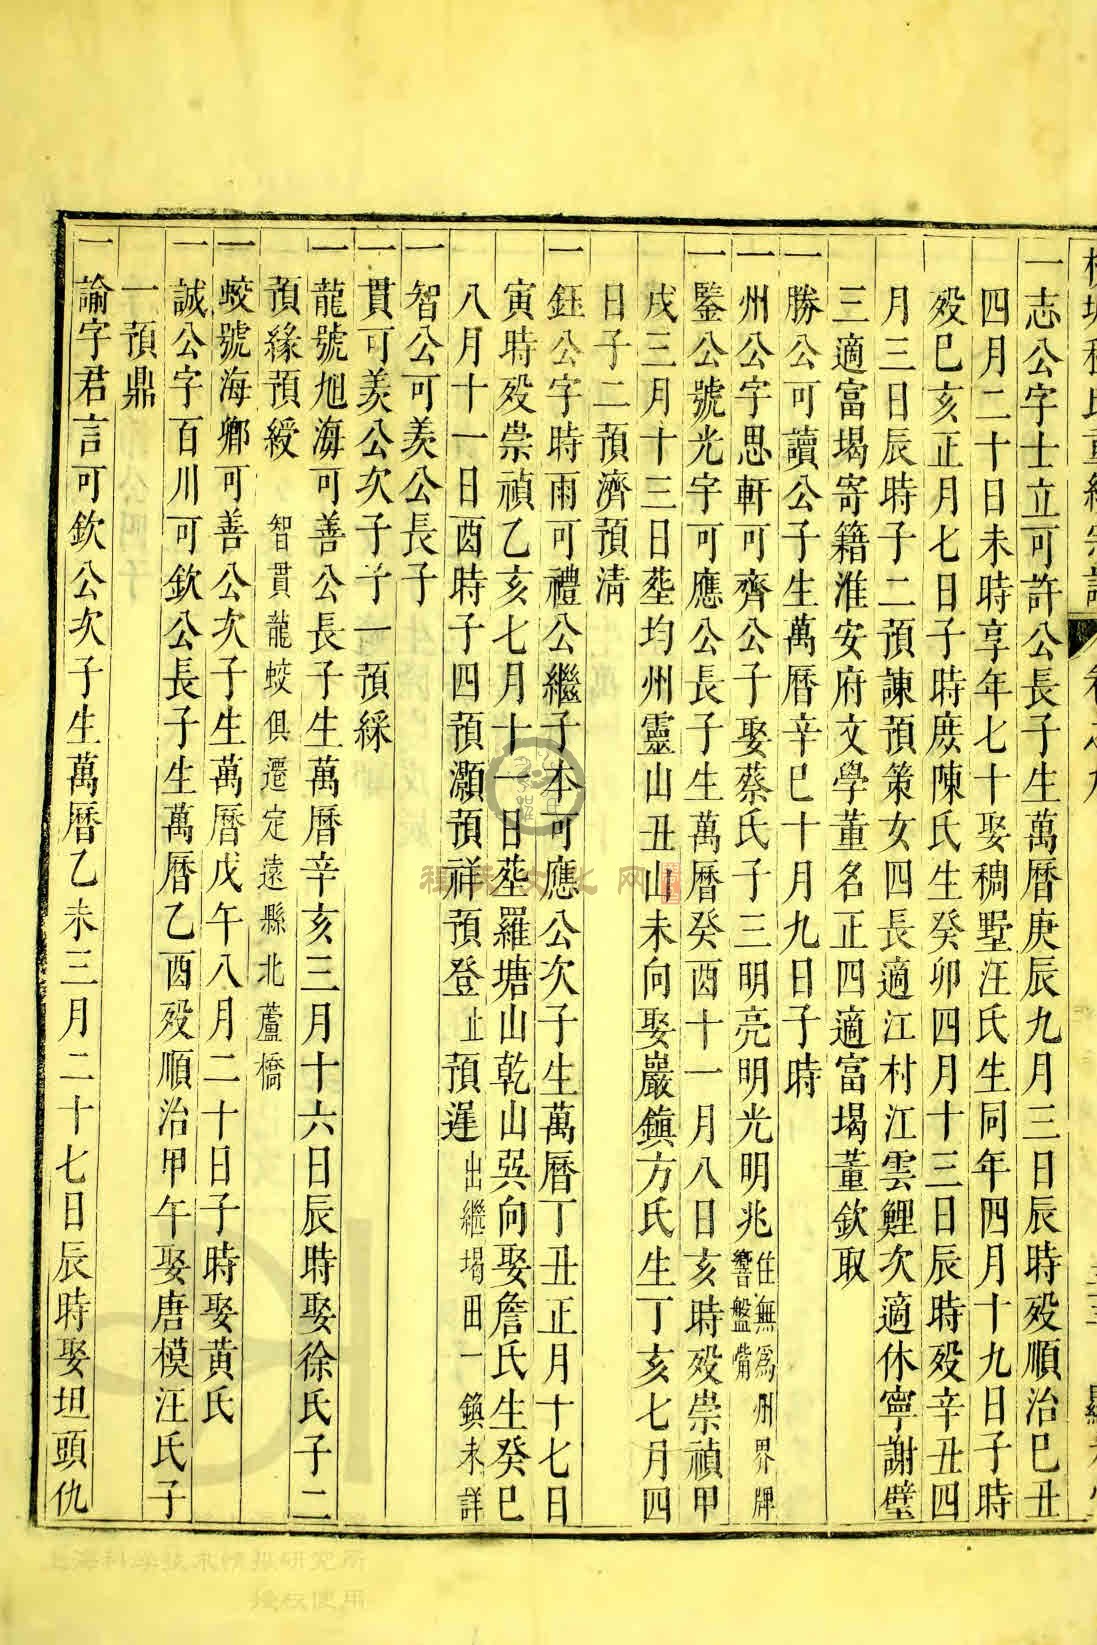 一志公字士立可許公長子生萬曆庚辰九月三日辰時歿順治巳丑
四月二十日未時享年七十娶稠墅汪氏生同年四月十九日子時
歿巳亥正月七日子時庶陳氏生癸卯四月十三日辰時歿辛丑四
月三日辰時子二預諫預策女四長適江村江雲鯉次適休寧謝璧
三適富堨寄籍淮安府文學董名正四適富堨董欽取
一勝公可讀公子生萬曆辛巳十月九日子時
一州公字思軒可齊公子娶蔡氏子三明亮明光明兆住無為州界牌響盤嘴
一鑒公號光宇可應公長子生萬曆癸酉十一月八日亥時歿崇禎甲
戌三月十三日塟均州靈山丑山未向娶巖鎮方氏生丁亥七月四
日子二預濟預清
一鈺公字時雨可禮公繼子本可應公次子生萬曆丁丑正月十七日
寅時歿崇禎乙亥七月十一日塟羅塘山乾山巽向娶詹氏生癸巳
八月十一日酉時子四預灝預祥預登止預遲出繼堨田一鎮未詳
一智公可羨公長子
一貫可羨公次子子一預綵
一龍號旭海可善公長子生萬曆辛亥三月十六日辰時娶徐氏子二
預緣預綬 智貫龍蛟俱遷定遠縣北蘆橋
一蛟號海鄉可善公次子生萬曆戊午八月二十日子時娶黃氏
一誠公字百川可欽公長子生萬曆乙酉歿順治甲午娶唐模汪氏子
一預鼎
一諭字君言可欽公次子生萬曆乙未三月二十七日辰時娶坦頭仇
上海科学技术情报研究所
授权使用